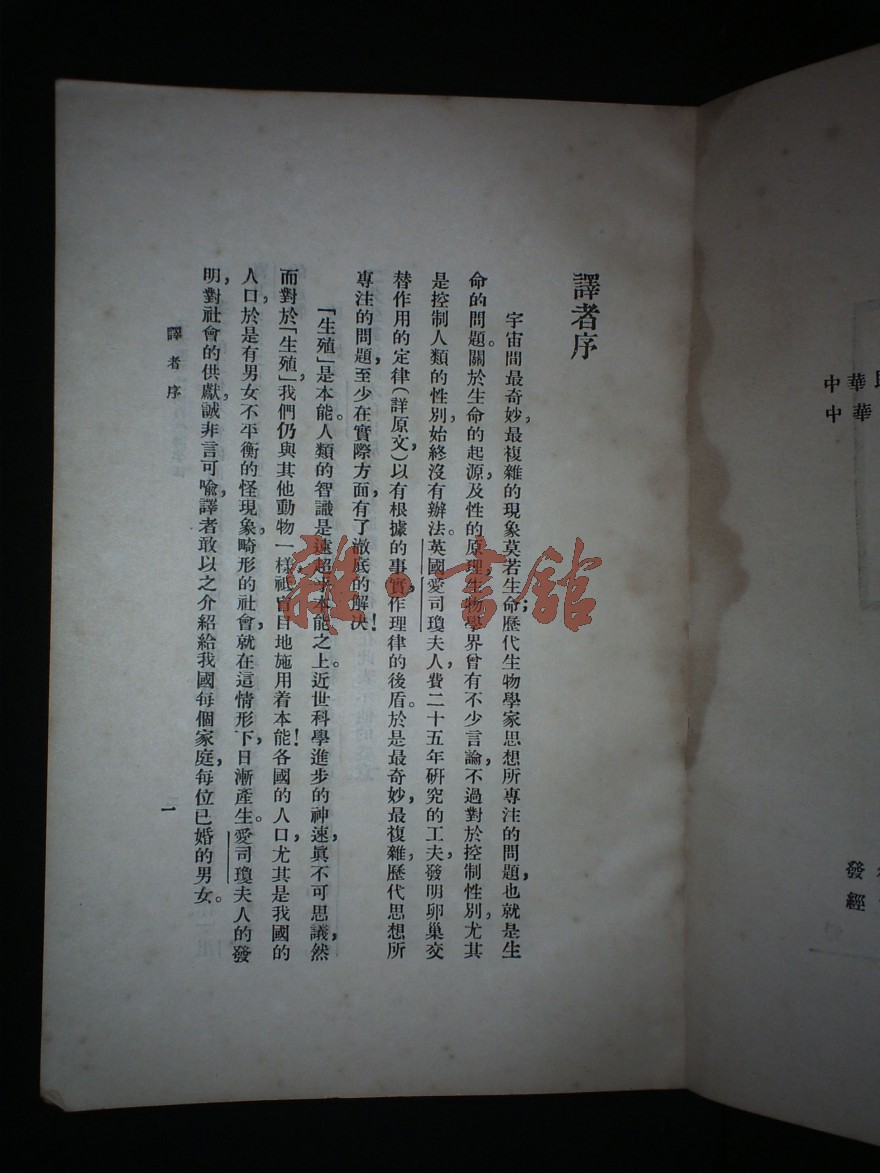 譯者序
宇宙間最奇妙,最複雜的現象莫若生命;歷代生物學家思想所專注的問題,也就是生
命的問題。關於生命的起源,及性的原理,生物學界曾有不少言論,不過對於控制性別,尤其
是控制人類的性別,始終沒有辦法。英國愛司瓊夫人,費二十五年研究的工夫,發明卵巢交
替作用的定律(詳原文),以有根據的事實,作理律的後盾。於是最奇妙,最複雜,歷代思想所
專注的問題,至少在實際方面有了澈底的解决!
「生殖」是本能。人類的智識是遠超乎本能之上。近世科學進步的神速,眞不可思議,然
而對於「生殖」,我們仍與其他動物一樣,祇盲目地施用着本能!各國的人口,尤其是我國的
人口,於是有男女不平衡的怪現象,畸形的社會,就在這情形下,日漸產生。愛司瓊夫人的發
明,對社會的供獻,誠非言可喩,譯者敢以之介紹給我國每個家庭,每位已婚的男女。
譯者序
一
雜·書館
中華
中華
發
經